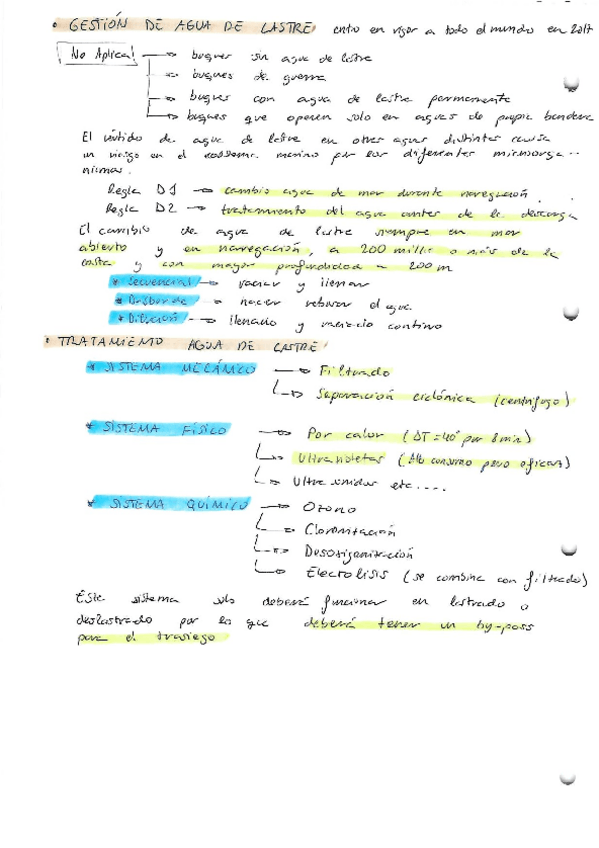 • GESTIÓN DE AGUA DE LASTRE: entró en vigor a todo el mundo en 2017
No Aplica → buques sin agua de lastre
→ buques de guerra
→ buques con agua de lastre permanente
→ buques que operen solo en aguas de propia bandera
El vertido de agua de lastre en otras aguas distintas causa
un riesgo en el ecosistema marino por los diferentes microorga-
nismos.
Regla D1 → cambio agua de mar durante navegación.
Regla D2 → tratamiento del agua antes de la descarga
El cambio de agua de lastre siempre en mar
abierto y en navegación, a 200 millas o más de la
costa y con mayor profundidad a 200 m
* Secuencial → vaciar y llenar
* Desborde → hacer rebosar el agua.
* Dilución → llenado y vaciado continuo
• TRATAMIENTO AGUA DE LASTRE:
* SISTEMA MECÁNICO → Filtrado
→ Separación ciclónica (centrífugo)
* SISTEMA FÍSICO → Por calor (ΔT = 40° por 8 min)
→ Ultravioletas (Alto consumo pero eficaz)
→ Ultrasonidos etc....
* SISTEMA QUÍMICO → Ozono
→ Cloronitación
→ Desoxigenitación
→ Electrolisis (se combina con filtrado)
Este sistema solo deberá funcionar en lastrado o
deslastrado por lo que deberá tener un by-pass
para el trasiego